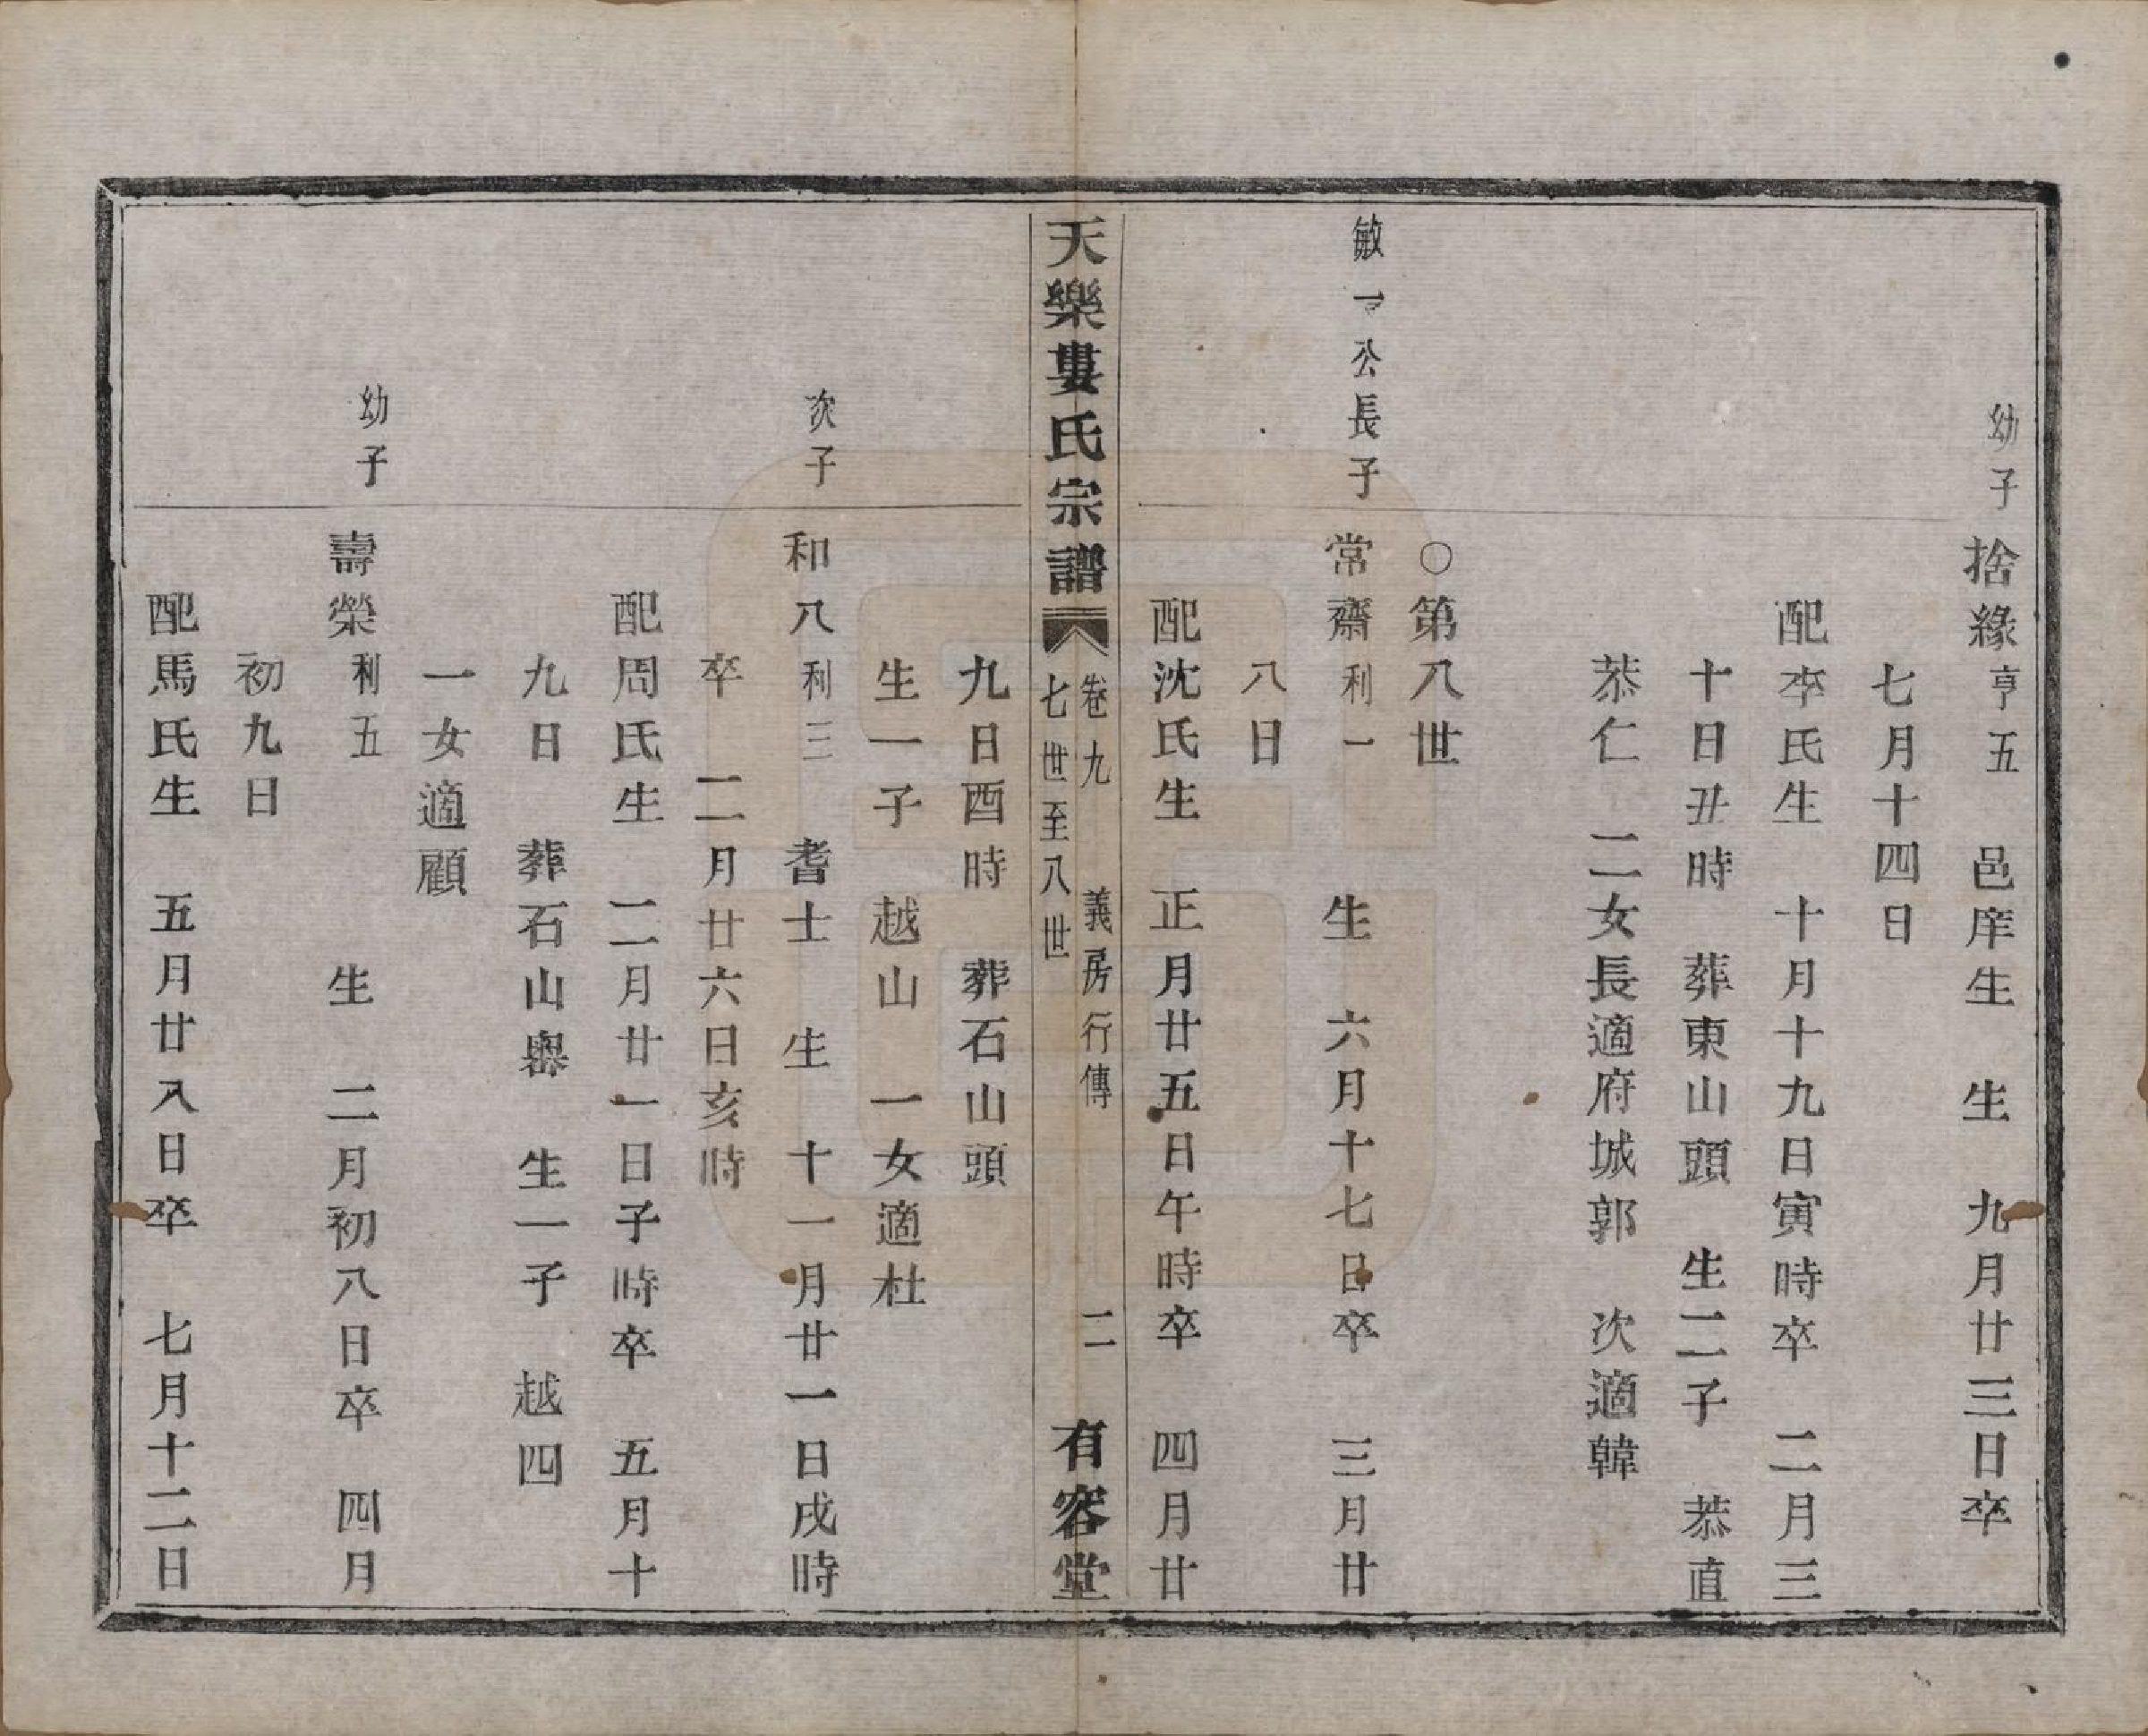 幼子　捨緣亨五　邑庠生　生　九月廿三日卒
七月十四日
配李氏生　十月十九日寅時卒　二月三
十日丑時　葬東山頭　生二子　恭直
恭仁　二女長適府城郭　次適韓
○第八世
敏一公長子　常齋利一　生　六月十七日卒　三月廿
八日
配沈氏生　正月廿五日午時卒　四月廿
天樂婁氏宗譜　卷九　義房行傳　七世至八世　二　有容堂
九日酉時　葬石山頭
生一子　越山　一女適杜
次子　和八利三　耆士　生　十一月廿一日戌時
卒　二月廿六日亥時
配周氏生　二月廿一日子時卒　五月十
九日　葬石山嶴　生一子　越四
一女適顧
幼子　壽榮利五　生　二月初八日卒　四月
初九日
配馬氏生　五月廿八日卒　七月十二日